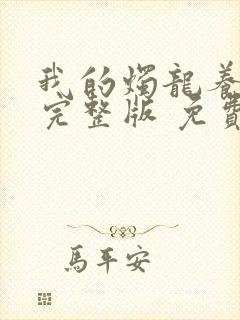 我的燭龍養
完整版 免費
馬平安